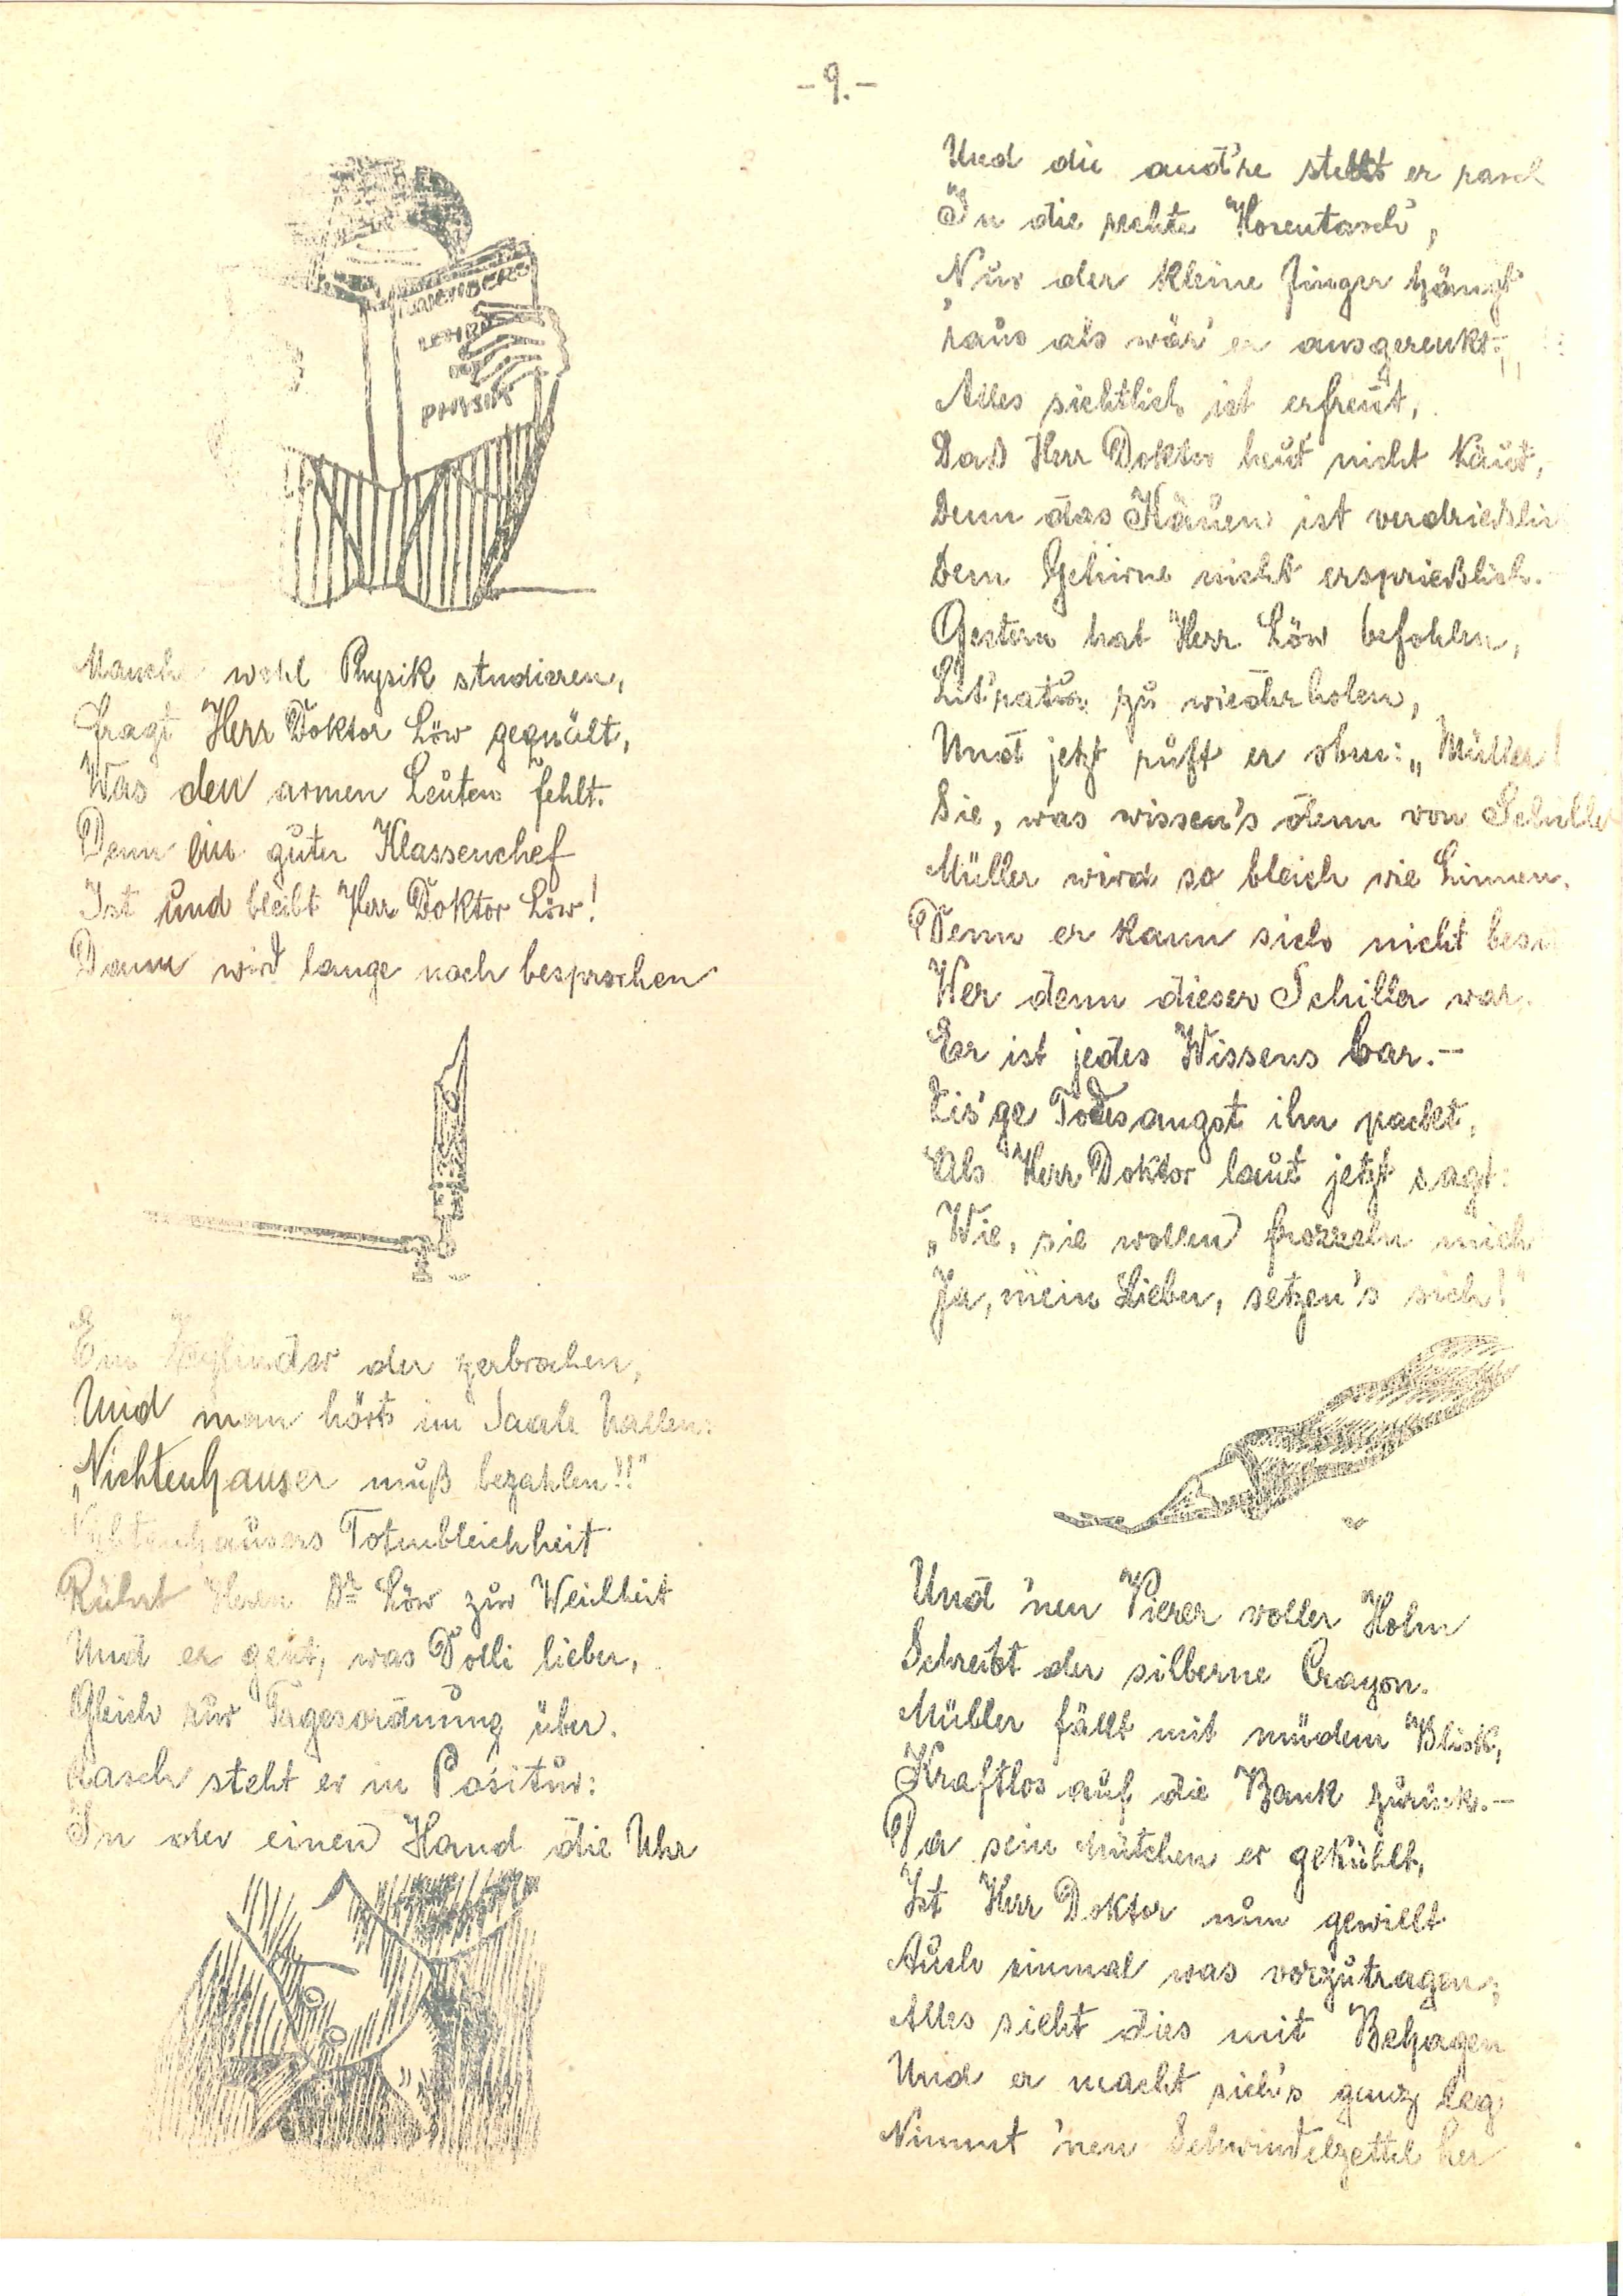 -9.-
LEHRB
PHYSIK
Manche wohl Physik studieren,
fragt Herr Doktor Löw gequält,
Was den armen Leuten fehlt.
Denn ein guter Klassenchef
Ist und bleibt Herr Doktor Löw!
Dann wird lange noch besprochen
Ein Zylinder der zerbrochen,
Und man hörts im Saale hallen:
„Nichtenhauser muß bezahlen!!"
Nichtenhausers Totenbleichheit
Rührt Herrn Dr Löw zur Weichheit
Und er geht, was Tolli lieber,
Gleich zur Tagesordnung über.
Rasch steht er in Positur:
In der einen Hand die Uhr
Und die and're stellt er rasch
In die rechte Hosentasch',
Nur der kleine Finger hängt
'raus als wär er ausgerenkt.
Alles sichtlich ist erfreut,
Daß Herr Doktor heut nicht käut,
Denn das Käuen ist verdrießlich
Dem Gehirne nicht ersprießlich.
Gestern hat Herr Löw befohlen,
Lit'ratur zu wiederholen,
Und jetzt ruft er oben: „Müller!
Sie, was wissen's denn von Schiller
Müller wird so bleich wie Linnen,
Denn er kann sich nicht besi
Wer denn dieser Schiller war.
Er ist jedes Wissens bar.-
Eis'ge Todesangst ihn packt,
Als Herr Doktor laut jetzt sagt:
„Wie, sie wollen frozzeln mich
Ja, mein Lieber, setzen's sich!"
Und 'nen Vierer voller Hohn
Schreibt der silberne Crayon.
Müller fällt mit müdem Blick,
Kraftlos auf die Bank zurück.-
Da sein Mütchen er gekühlt,
Ist Herr Doktor nun gewillt
Auch einmal was vorzutragen;
Alles sieht dies mit Behagen
Und er macht sich's ganz leg
Nimmt 'nen Schwindelzettel her